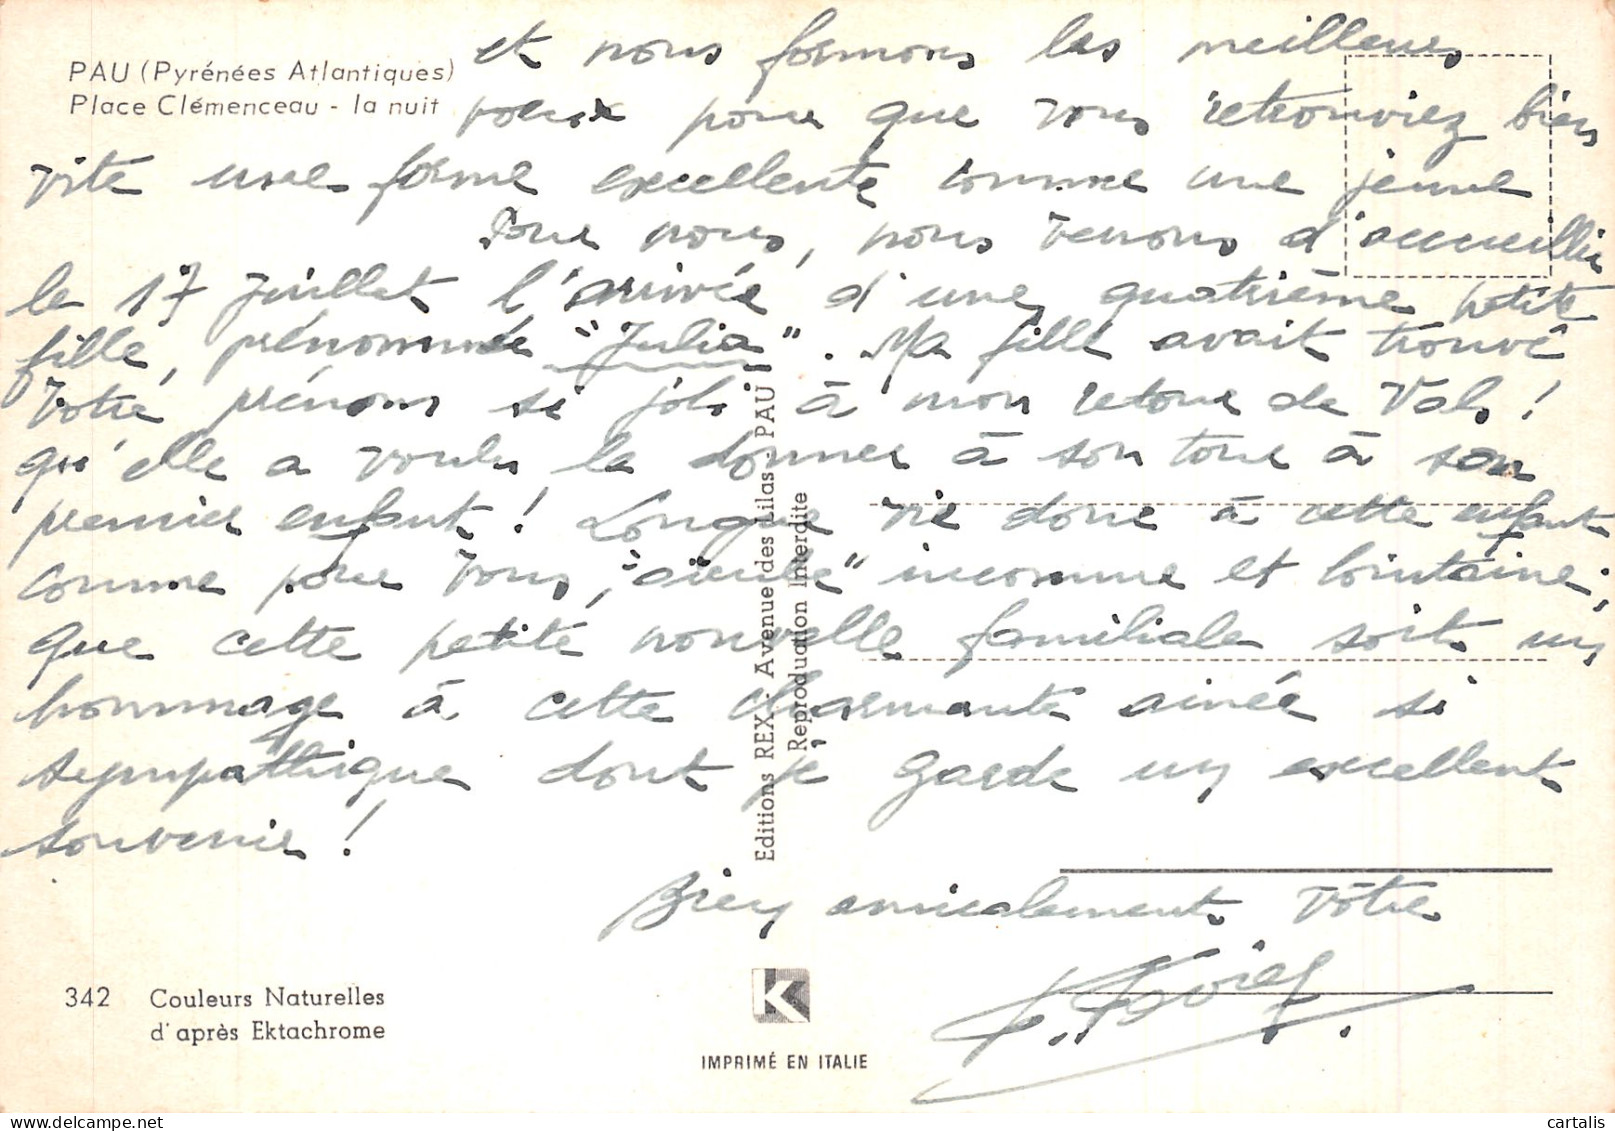 PAU (Pyrénées Atlantiques)
Place Clémenceau - la nuit
et nous formons les meilleurs
voeux pour que vous retrouviez bien
vite une forme excellente comme une jeune
Pour nous, nous venons d'accueillir
le 17 Juillet l'arrivée d'une quatrième petite
fille, prénommée "Julia". Ma fille avait trouvé
Votre prénom si joli à mon retour de Vals !
qu'elle a voulu le donner à son tour à son
premier enfant ! Longue vie donc à cette enfant
comme pour Vous, "aïeule" inconnue et lointaine ;
que cette petite nouvelle familiale soit un
hommage à cette charmante ainée si
sympathique dont je garde un excellent
souvenir !
Bien amicalement Vôtre
Editions REX - Avenue des Lilas - PAU
Reproduction Interdite
342 Couleurs Naturelles
d'après Ektachrome
K
IMPRIMÉ EN ITALIE
cartalis